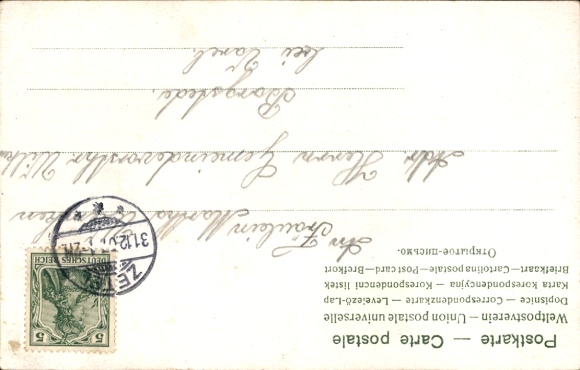 Postkarte — Carte postale
Weltpostverein – Union postale universelle
Dopisnice — Correspondenzkarte — Levelező-Lap
Karta korespondencyjna — Korespondenční lístek
Briefkaart—Cartolina postale—Post card—Brefkort
Открытое-письмо.
An
Fräulein Martha
Adr. Herrn Gemeindevorsthr Wilken
Borgstede.
bei Varel.
ZETEL
31.12.0
DEUTSCHES REICH
5 5